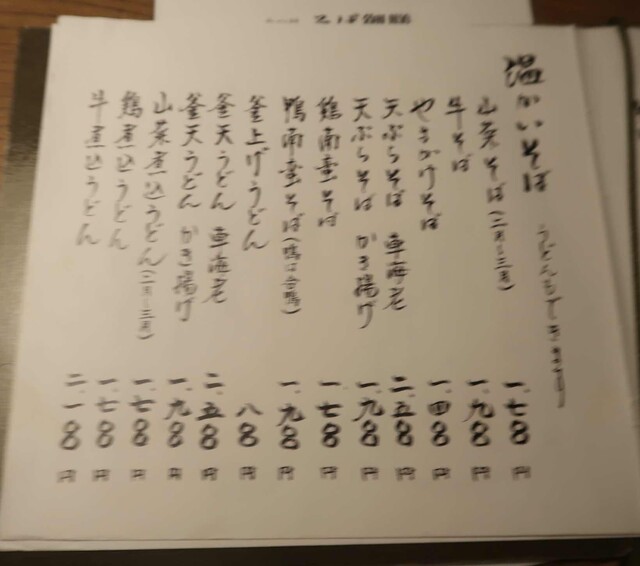 温かいそば うどんもできます
山菜そば(二月〜三月) 一、七〇〇円
牛そば 一、九〇〇円
やまかけそば 一、四〇〇円
天ぷらそば 車海老 二、五〇〇円
天ぷらそば かき揚げ 一、九〇〇円
鶏南蛮そば 一、七〇〇円
鴨南蛮そば(鴨は合鴨) 一、九〇〇円
釜上げうどん 八〇〇円
釜天うどん 車海老 二、五〇〇円
釜天うどん かき揚げ 一、九〇〇円
山菜煮込うどん(二月〜三月) 一、七〇〇円
鶏煮込うどん 一、七〇〇円
牛煮込うどん 二、一〇〇円